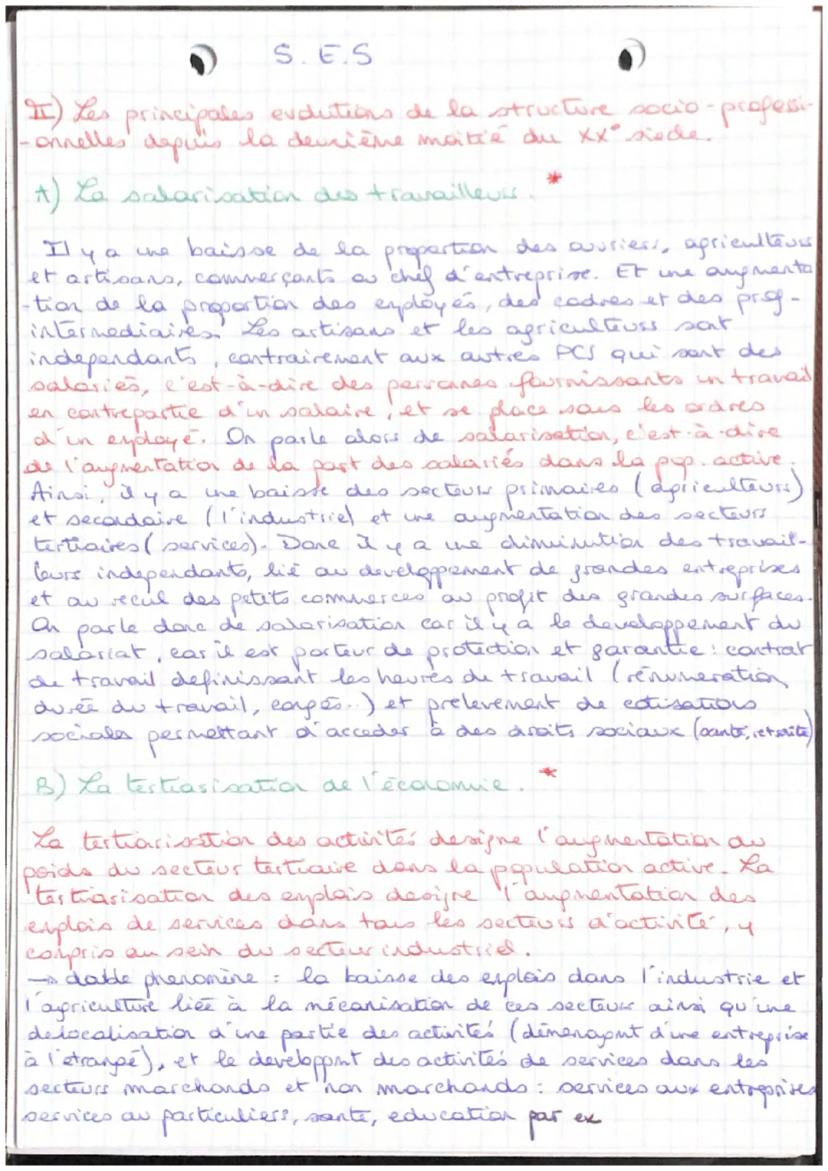 S.E.S
II) Les principales evolutions de la structure socio-professi-
-onnelles depuis la deuxième moitié du XX° siecle.
A) La salarisation des travailleurs. *
Il y a une baisse de la proportion des ouvriers, agriculteurs
et artisans, commerçants ou chef d'entreprise. Et une augmenta
-tion de la proportion des employés, des cadres et des prof-
intermediaires. Les artisans et les agriculteurs sont
independants, contrairement aux autres PCS qui sont des
salariés, c'est-à-dire des personnes fournissants un travail
en contrepartie d'un salaire, et se place sous les ordres
d'un employé. On parle alors de salarisation, c'est-à-dire
de l'augmentation de la part des salariés dans la pop. active.
Ainsi, il y a une baisse des secteurs primaires (agriculteurs)
et secondaire (l'industrie) et une augmentation des secteurs
tertiaires (services). Donc il y a une diminution des travail-
leurs independants, lié au developpement de grandes entreprises
et au recul des petits commerces au profit des grandes surfaces.
On parle donc de salarisation car il y a le developpement du
salariat, car il est porteur de protection et garantie : contrat
de travail definissant les heures de travail (rénuneration,
durée du travail, congés...) et prelevement de cotisations
sociales permettant d'acceder à des droits sociaux (santé, retraite)
B) La tertiarisation de l'économie. *
La tertiarisation des activités designe l'augmentation du
poids du secteur tertiaire dans la population active. La
tertiarisation des emplois designe l'augmentation des
emplois de services dans tous les secteurs d'activité, y
compris au sein du secteur industriel.
→ double phenomène : la baisse des emplois dans l'industrie et
l'agriculture liée à la mécanisation de ces secteurs ainsi qu'une
delocalisation d'une partie des activités (déménagmt d'une entreprise
à l'étrangé), et le developpmt des activités de services dans les
secteurs marchands et non marchands : services aux entreprises
services au particuliers, santé, education par ex